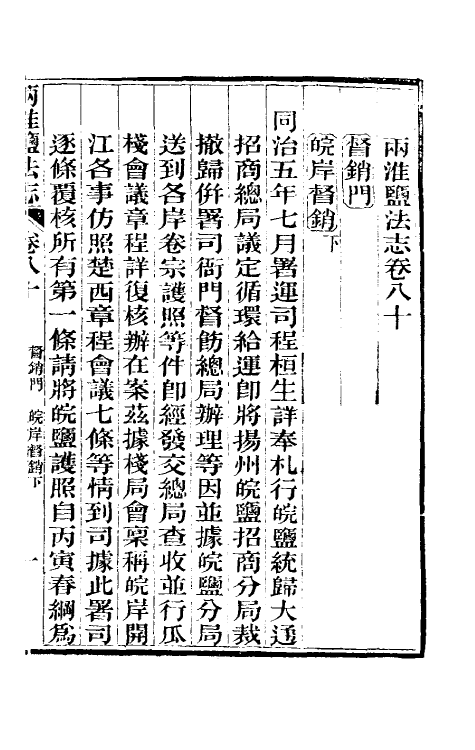 兩淮鹽法志卷八十
督銷門
皖岸督銷下
同治五年七月署運司程桓生詳奉札行皖鹽統歸大通
招商總局議定循環給運卽將揚州皖鹽招商分局裁
撤歸併署司衙門督飭總局辦理等因並據皖鹽分局
送到各岸卷宗護照等件卽經發交總局查收並行瓜
棧會議章程詳復核辦在案茲據棧局會稟稱皖岸開
江各事仿照楚西章程會議七條等情到司據此署司
逐條覆核所有第一條請將皖鹽護照自丙寅春綱爲
兩淮鹽法志 卷八十 督銷門 皖岸督銷下 一